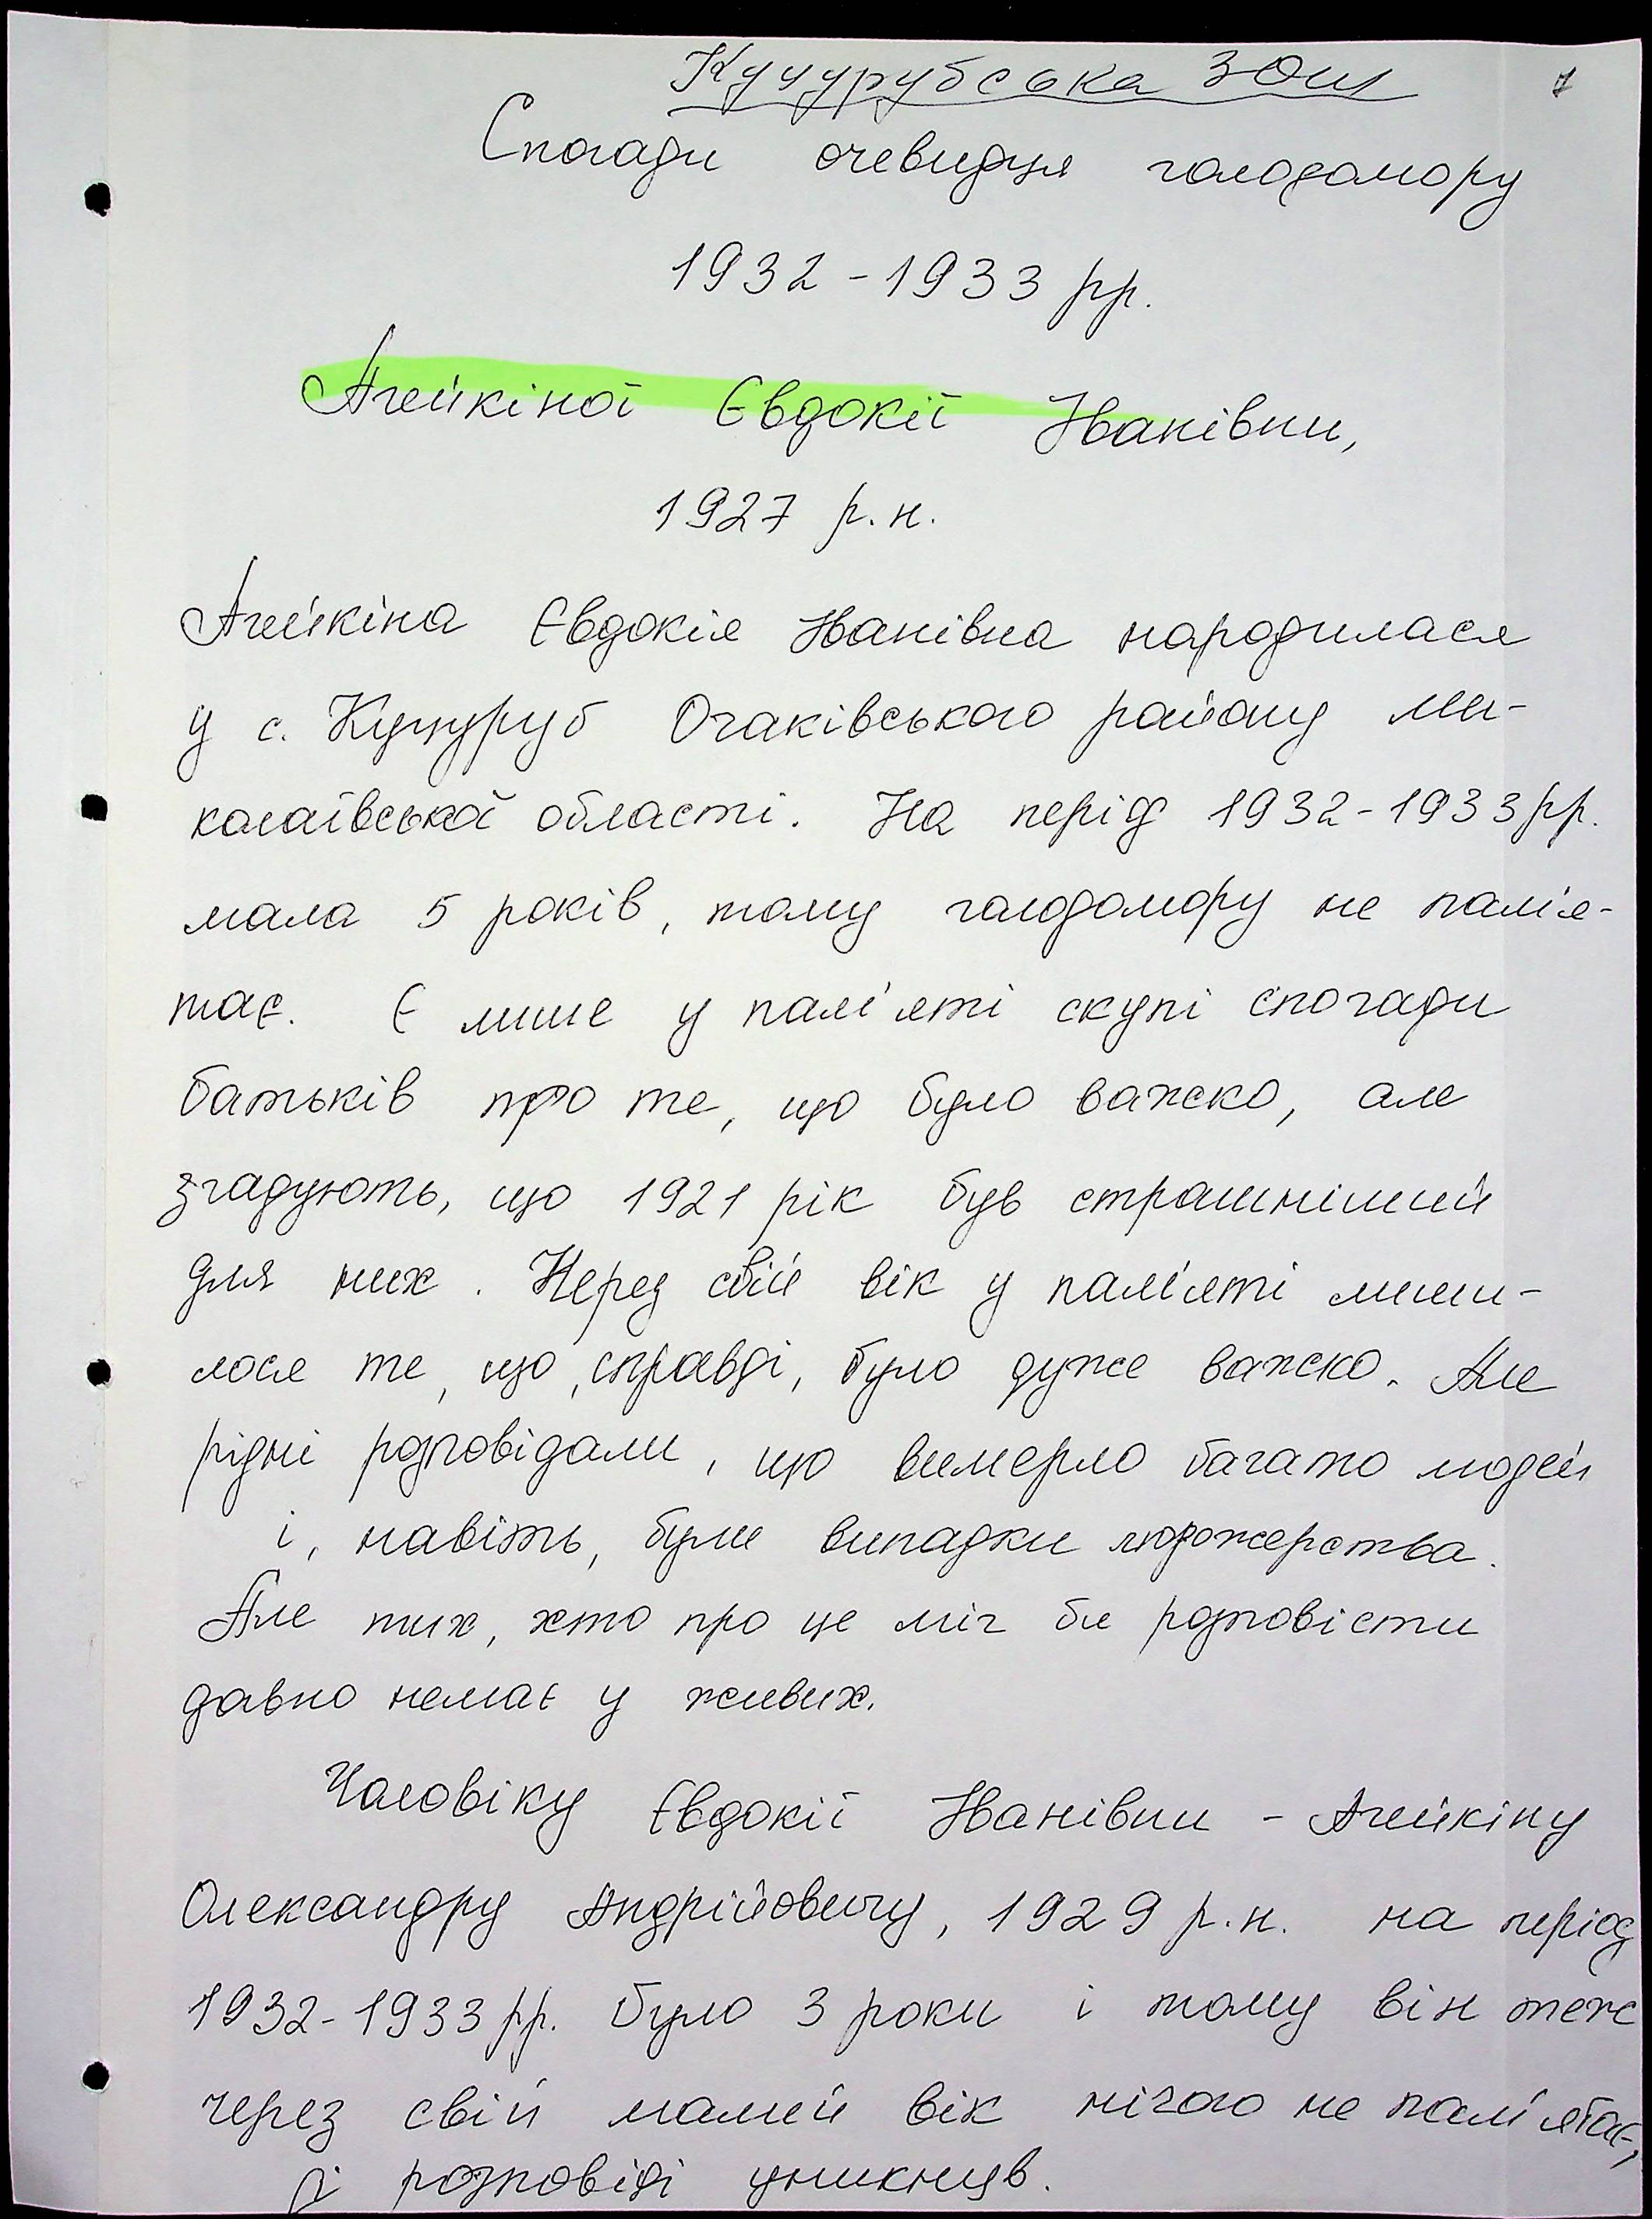 Куцурубська ЗОШ
1
Спогади очевидця голодомору
1932-1933 рр.
Агейкіної Євдокії Іванівни,
1927 р.н.
Агейкіна Євдокія Іванівна народилася
у с. Куцуруб Очаківського району Ми-
колаївської області. На період 1932-1933 рр.
мала 5 років, тому голодомору не пам'я-
тає. Є лише у пам'яті скупі спогади
батьків про те, що було важко, але
згадують, що 1921 рік був страшніший
для них. Через свій вік у пам'яті лиши-
лося те, що, справді, було дуже важко. Але
рідні розповідали, що вимерло багато людей
і, навіть, були випадки людожерства.
Але тих, хто про це міг би розповісти
давно немає у живих.
Чоловіку Євдокії Іванівни - Агейкіну
Олександру Андрійовичу, 1929 р.н. на період
1932-1933 рр. було 3 роки і тому він теж
через свій малий вік нічого не пам'ятає,
і розповіді уникнув.